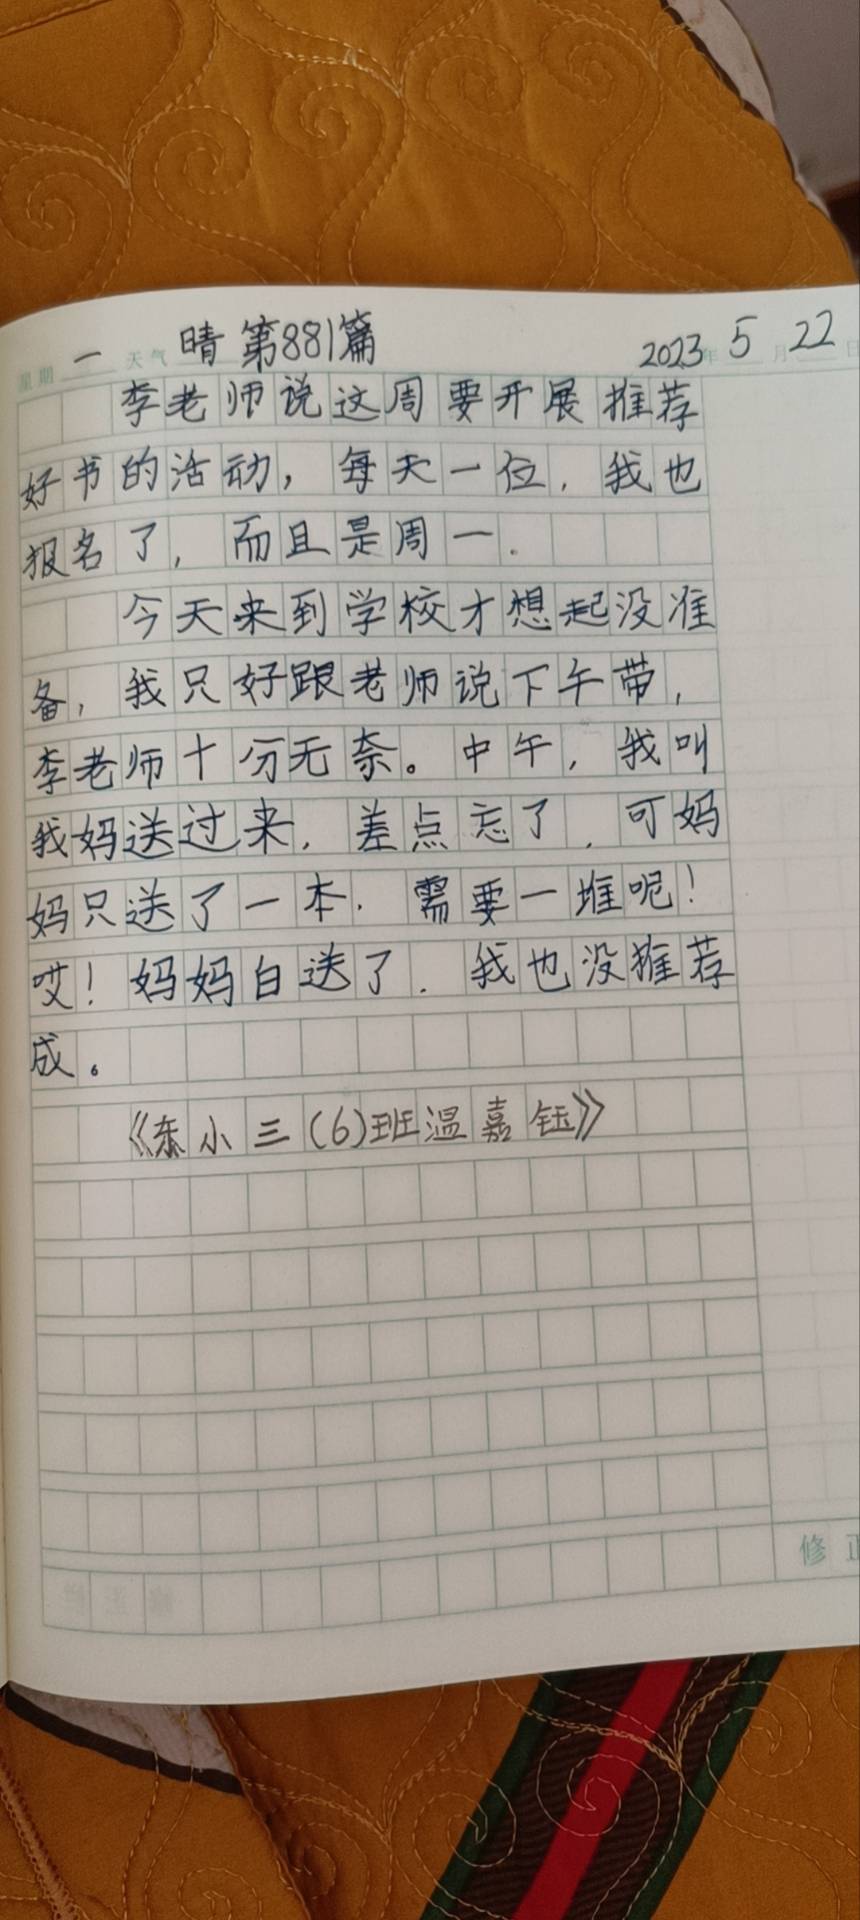 星期 一 天气 晴 第881篇 2023年 5月 22日
李老师说这周要开展推荐
好书的活动，每天一位，我也
报名了，而且是周一.
今天来到学校才想起没准
备，我只好跟老师说下午带，
李老师十分无奈。中午，我叫
我妈送过来，差点忘了，可妈
妈只送了一本.需要一堆呢！
哎！妈妈白送了.我也没推荐
成。
《东小三(6)班温嘉钰》
修正